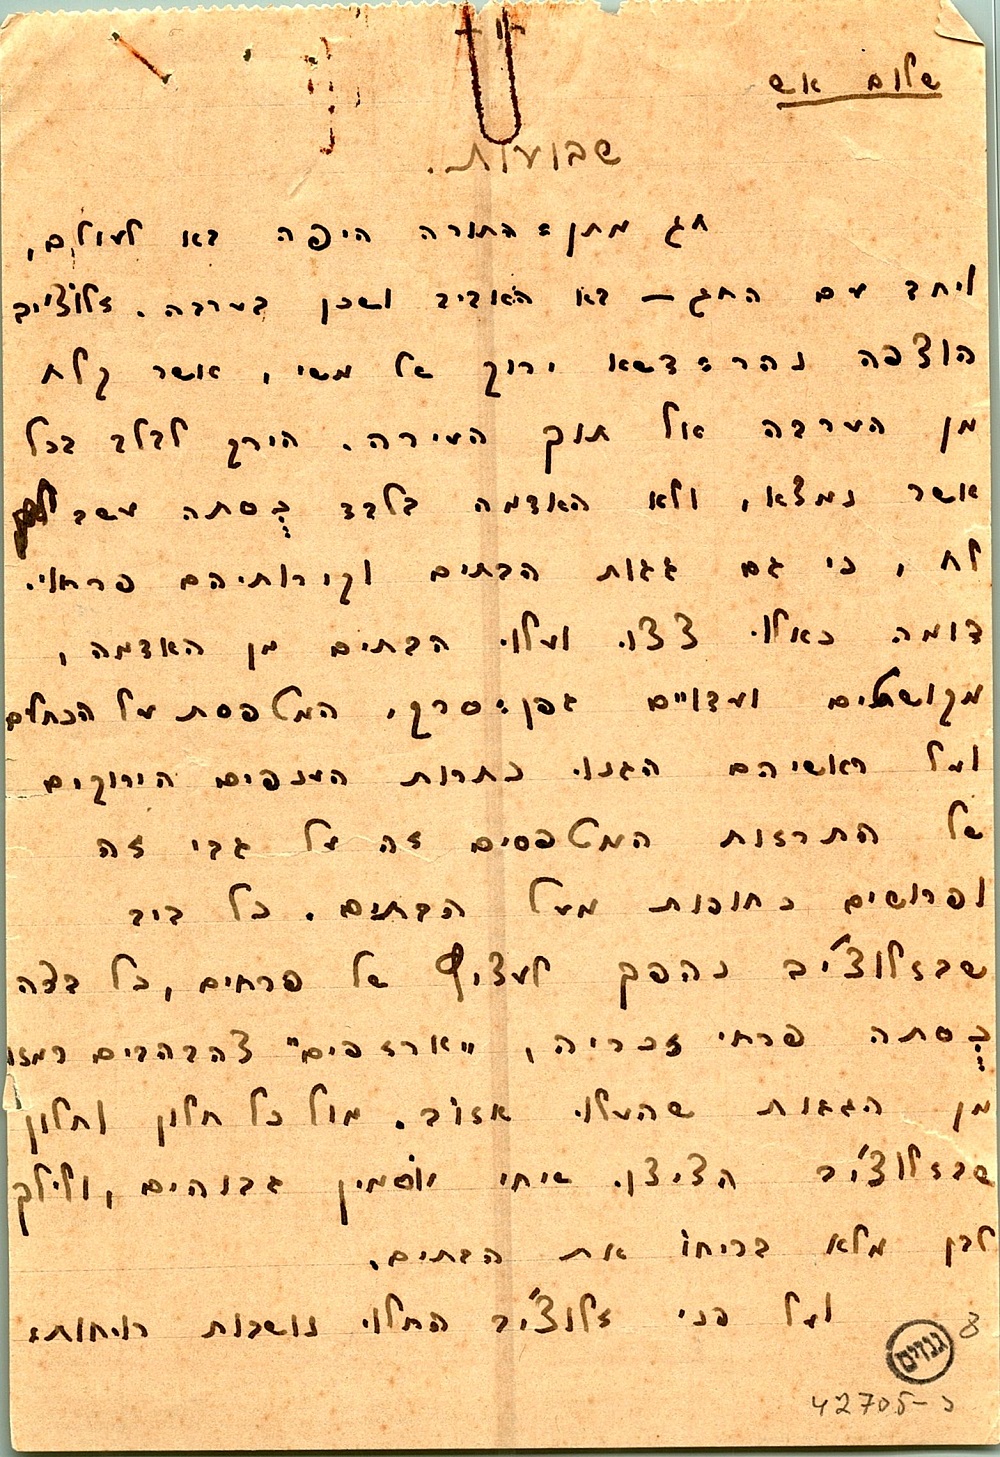 שלום אש
שבועות.
חג מתן-התורה היפה בא לעולם,
ויחד עם החג — בא האביב ושכן בערבה. זלוצ'יב
הוצפה נהר-דשא ירוק של משי, אשר קלח
מן הערבה אל תוך העירה. הירק לבלב בכל
אשר נמצא, ולא האדמה בלבד כֻּסתה עשב
לח, כי גם גגות הבתים וקירותיהם פראו.
דומה כאלו צצו ועלו הבתים מן האדמה,
מקושטים ועדויים גפן-סרק, המטפסת על הכתלים
ועל ראשיהם הגנו כתרות הענפים הירוקים
של התרזות המטפסים זה על גבי זה
ופרושים כחופות מעל הבתים. כל ביב
שבזלוצ'יב נהפך לעציץ של פרחים, כל בצה
כֻּסתה פרחי זכריה, "ארזפים" צהבהבים רמזו
מן הגגות שהעלו אזוב. מול כל חלון וחלון
שבזלוצ'יב הציצו שיחי יסמין גבוהים, ולילך
לבן מלא בריחו את הבתים.
ועל פני זלוצ'יב החלו נושבות רוחות-
8
גנזים
42705-כ